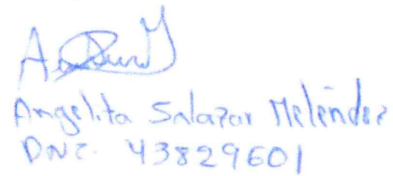 Angelita Salazar Meléndez
DNI. 43829601